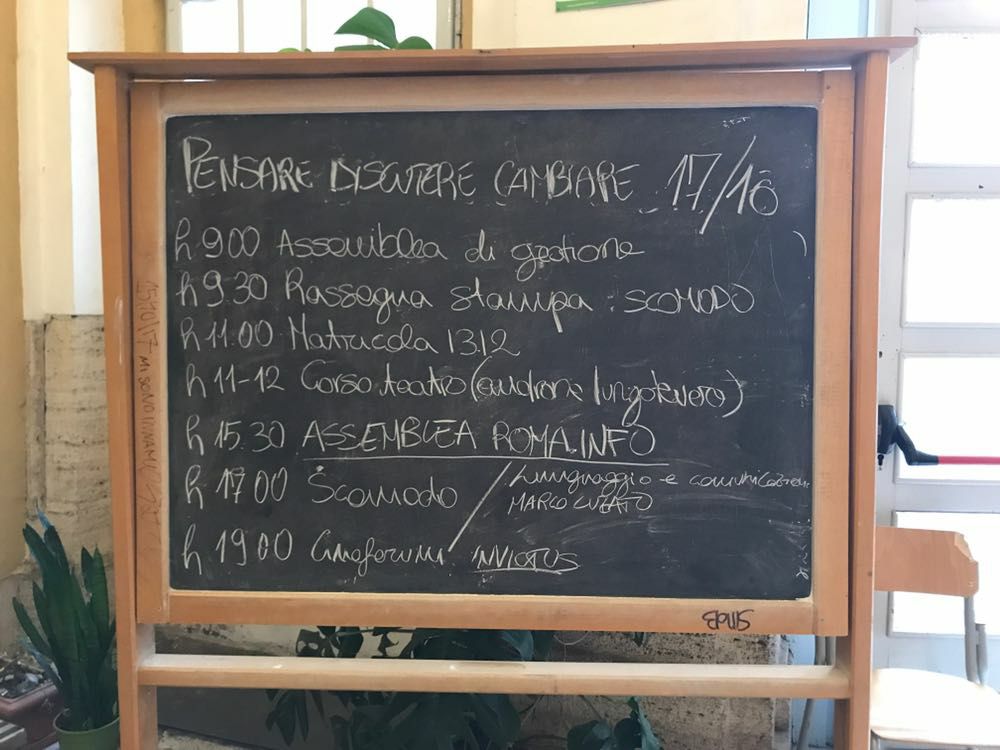 PENSARE DISCUTERE CAMBIARE 17/10
h 9.00 Assemblea di gestione
h 9.30 Rassegna stampa : SCOMODO
h 11.00 Matricola 1312
h 11-12 Corso teatro (androne lungotevere)
h 15.30 ASSEMBLEA ROMA.INFO
h 17.00 Scomodo / Linguaggio e comunicazione
MARCO
h 19.00 Cineforum INVICTUS